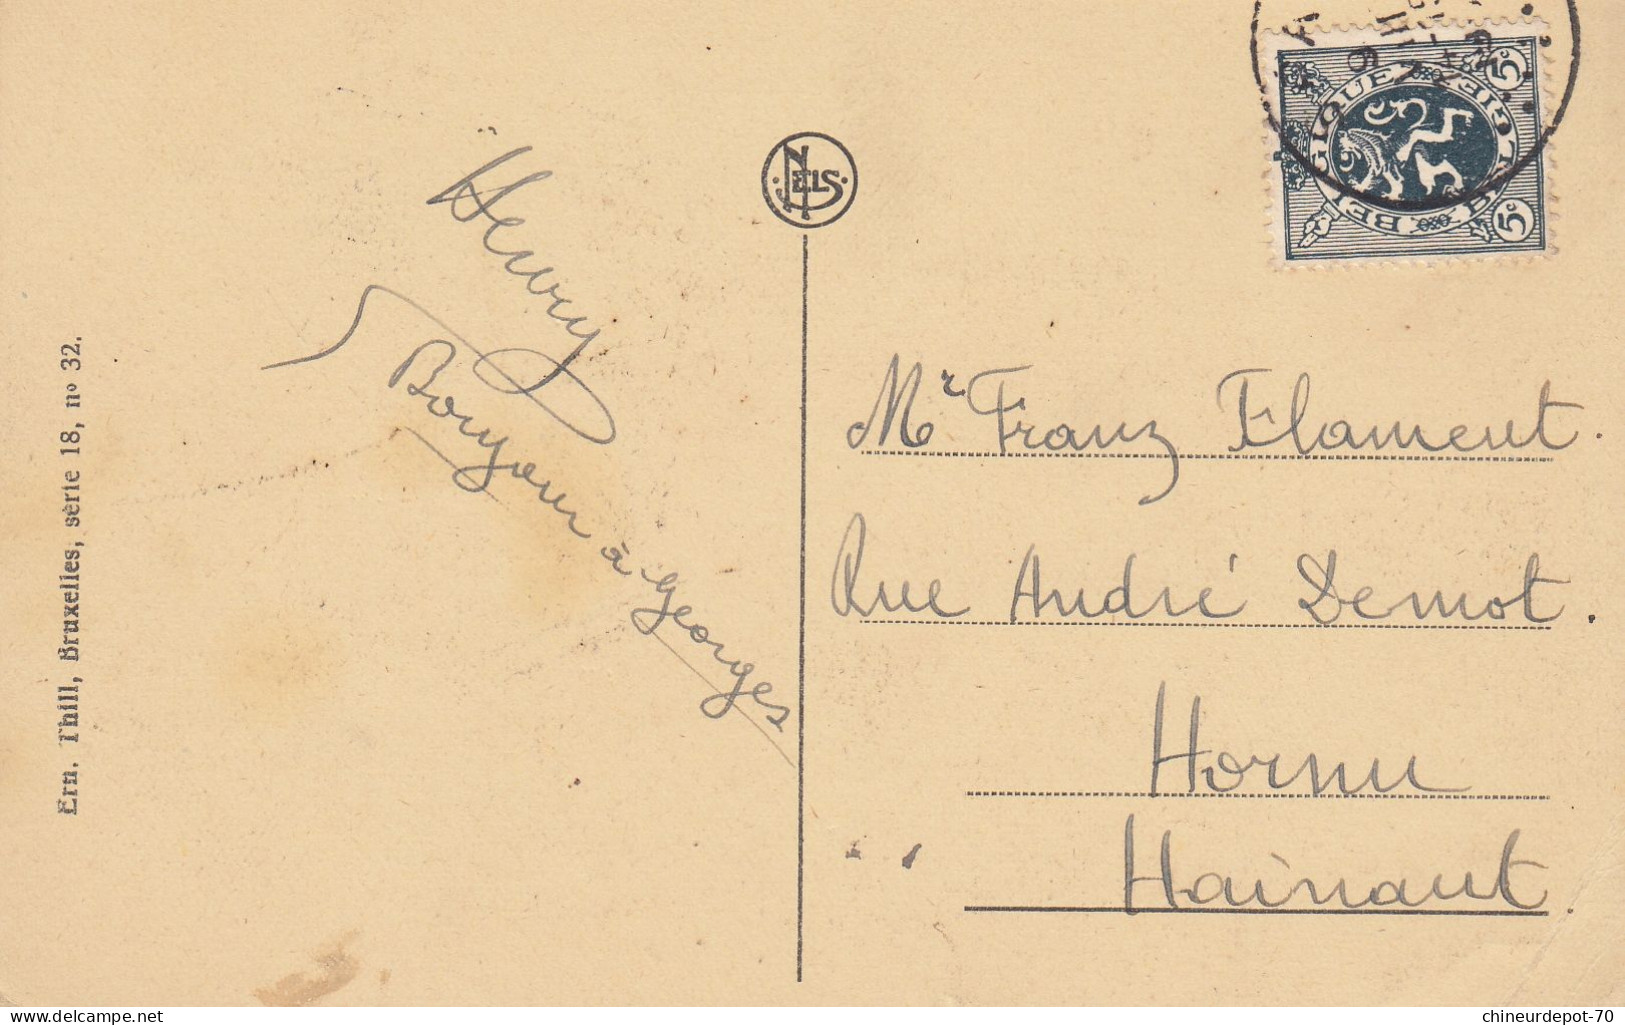 Ern. Thill, Bruxelles, série 18, nº 32.
Henry
Bonjour à Georges
NELS
BELGIQUE
BELGIE
5c
5c
Mr Franz Flament.
Rue André Demot.
Hornu
Hainaut.
chineurdepot-70